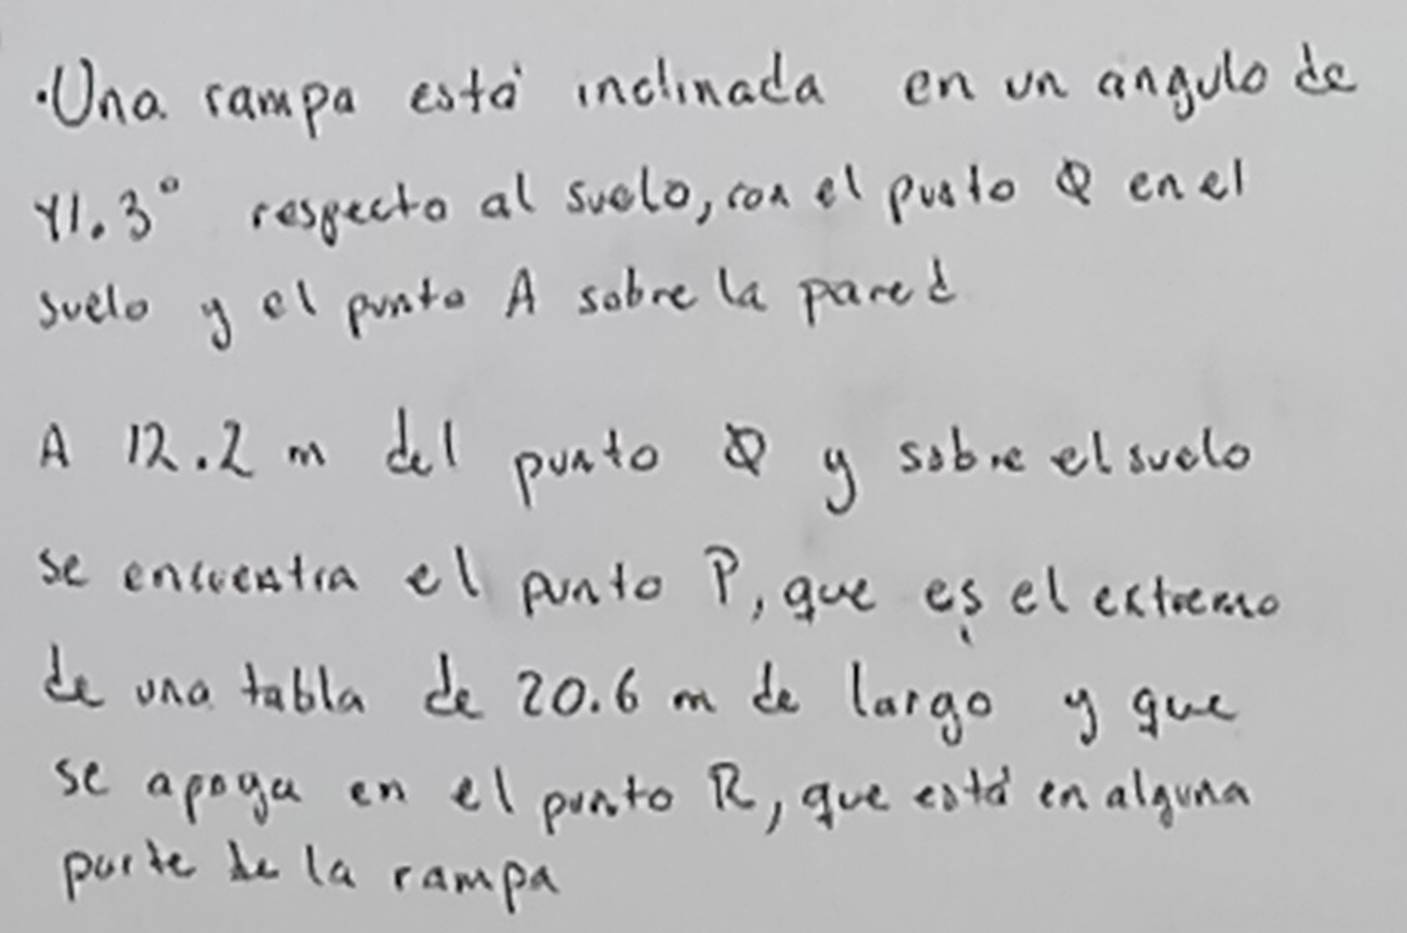 ·Una rampa está inclinada en un ángulo de
41.3° respecto al suelo, con el punto Q en el
suelo y el punto A sobre la pared
A 12.2 m del punto Q y sobre el suelo
se encuentra el punto P, que es el extremo
de una tabla de 20.6 m de largo y que
se apoya en el punto R, que está en alguna
parte de la rampa